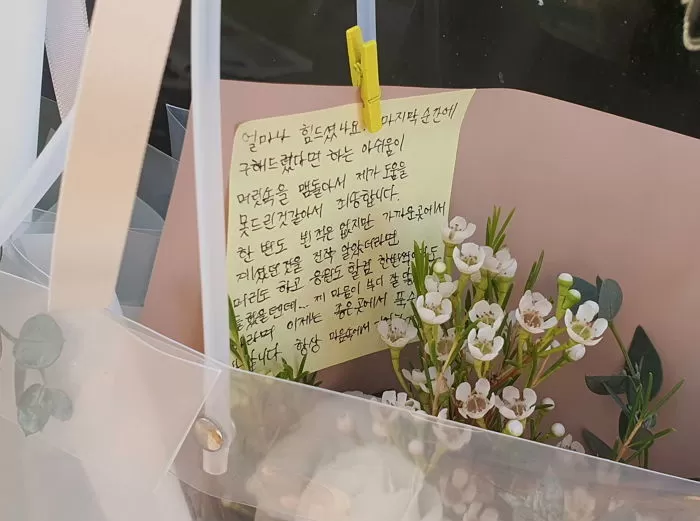 얼마나 힘드셨나요. 마지막 순간에
구해드렸다면 하는 아쉬움이
머릿속을 맴돌아서 제가 도움을
못드린것같아서 죄송합니다.
한 번도 뵌 적은 없지만 가까운곳에서
계셨던 것을 진작 알았더라면
머리도 하고 응원도 할겸 한번
제 마음이 부디 잘
이제는 좋은곳에서
항상 마음속에서